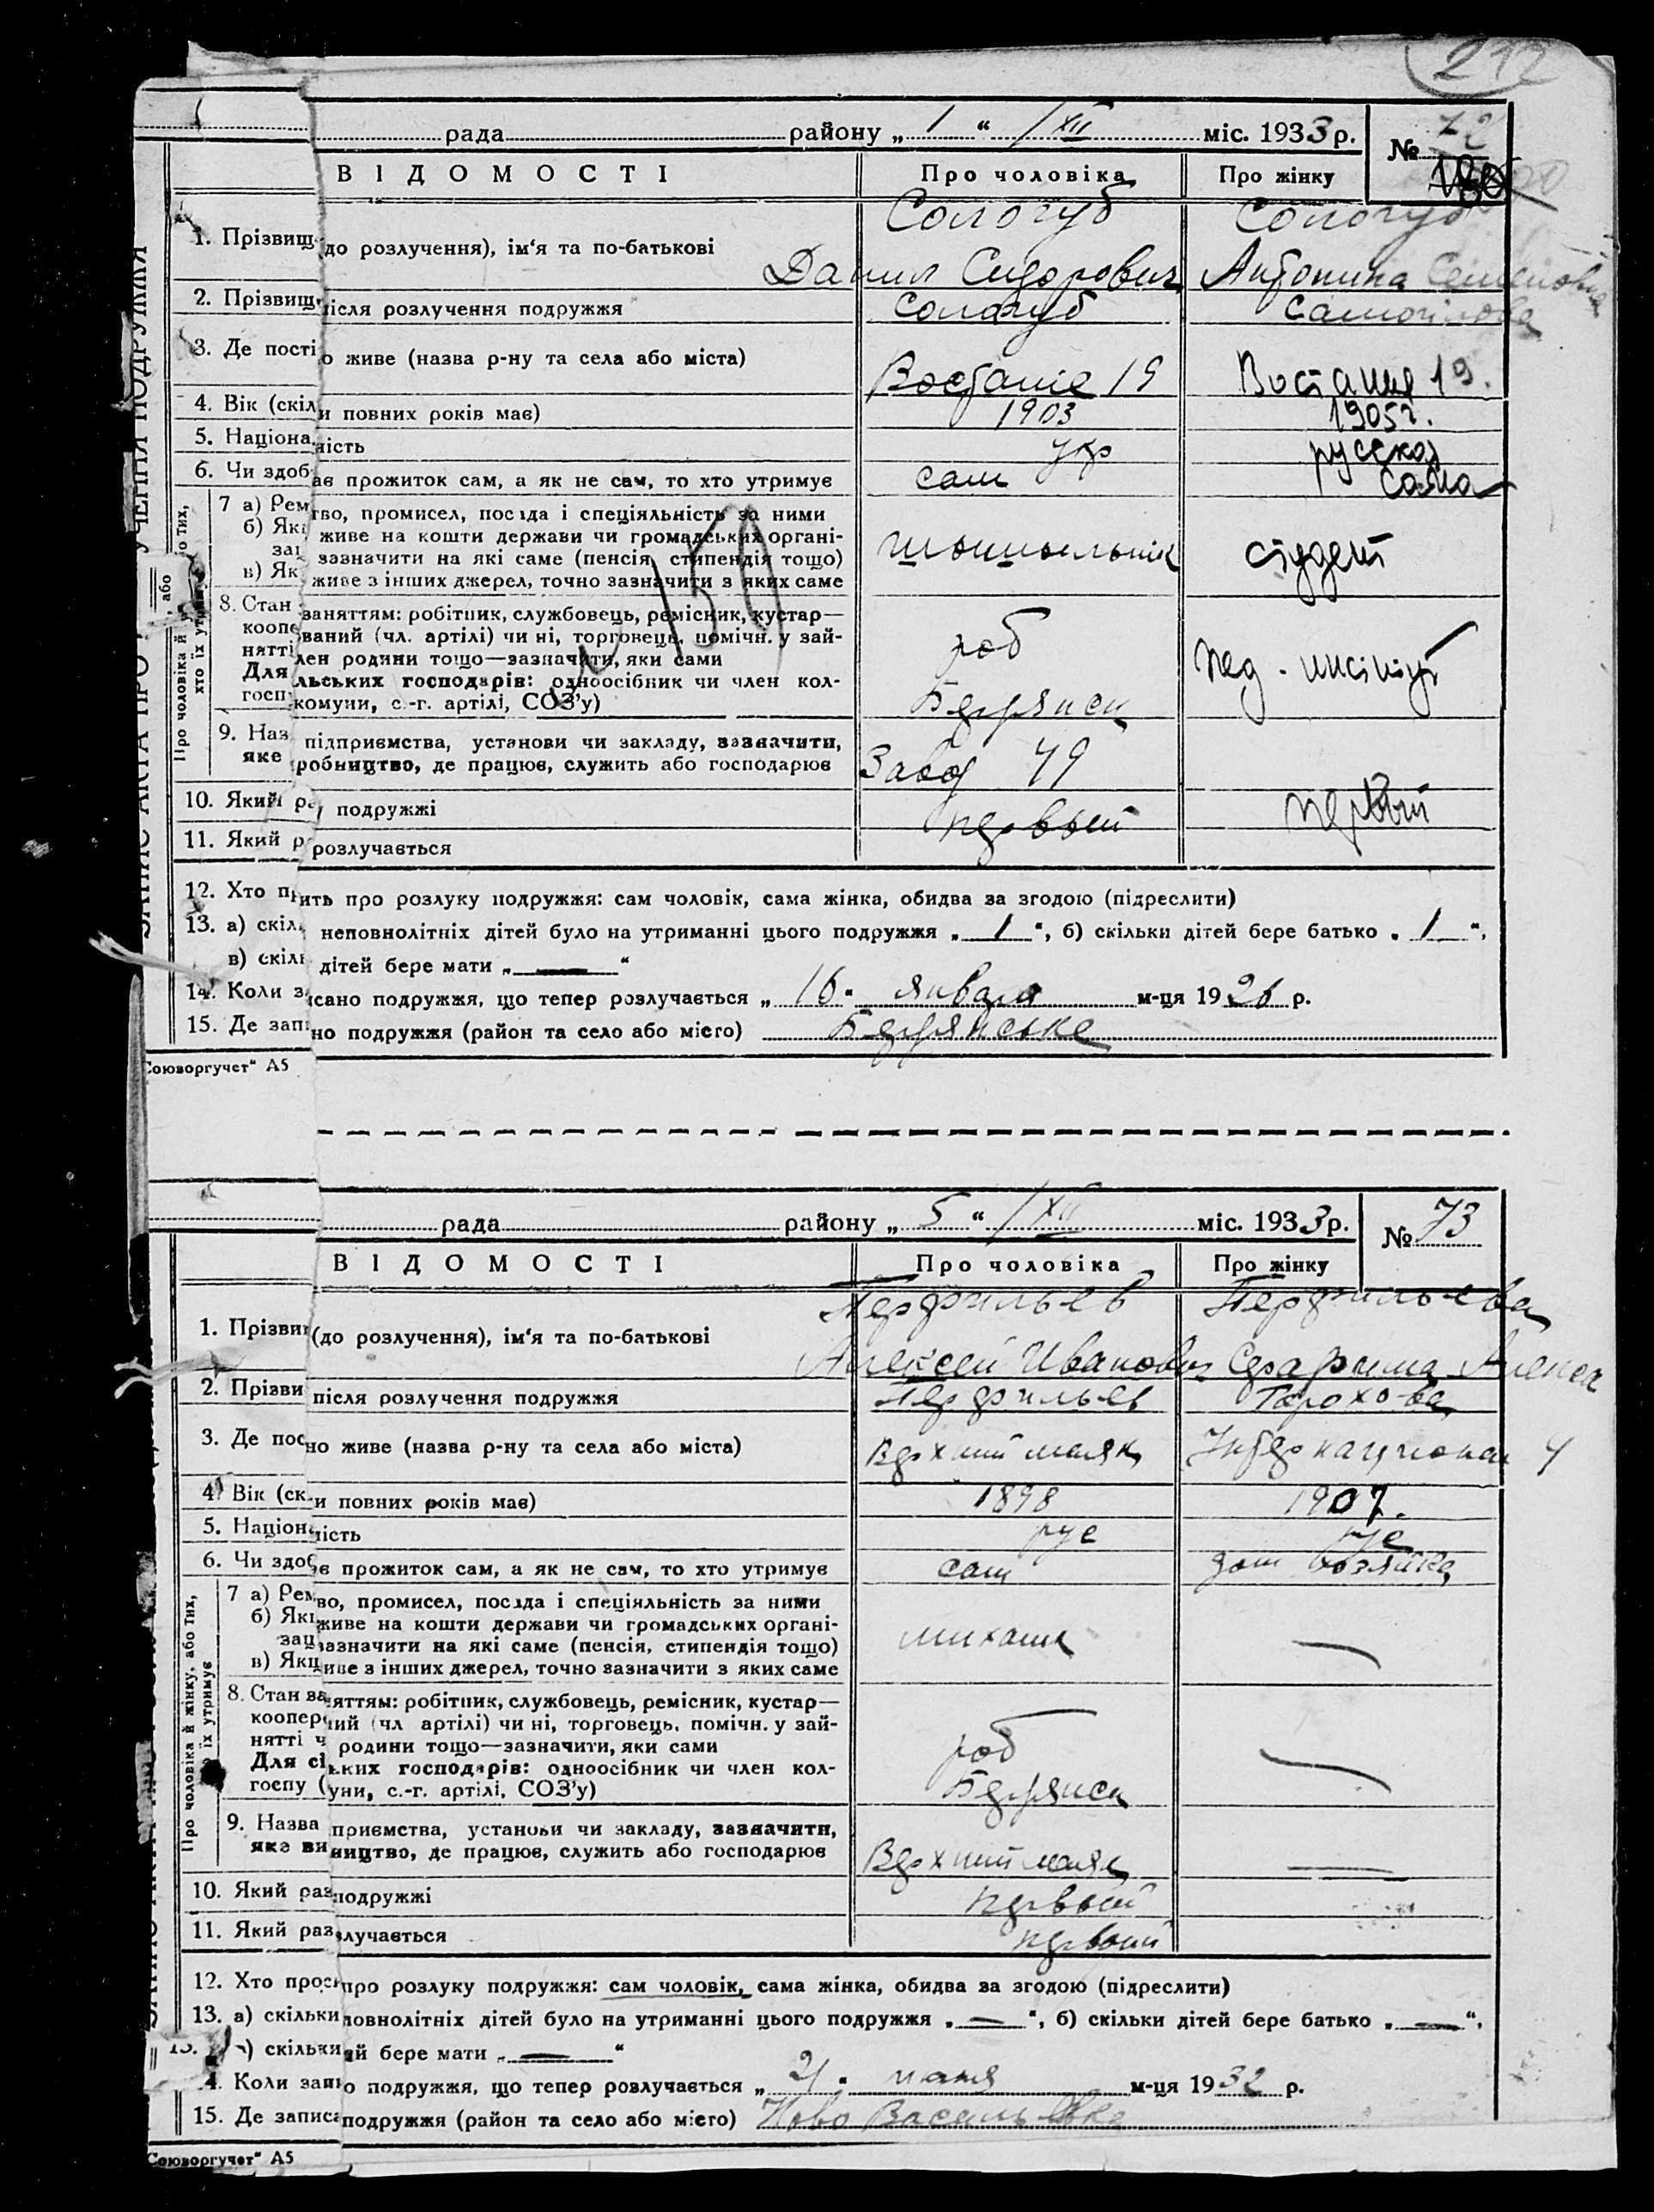 212
рада району „ 1 “ /XII міс. 1933 р.
№ 72
180
ВІДОМОСТІ Про чоловіка Про жінку
1. Прізвищ (до розлучення), ім‘я та по-батькові
Сологуб Сологуб
Данил Сидорович Антонина Семеновна
2. Прізвищ після розлучення подружжя Сологуб
3. Де пості о живе (назва р-ну та села або міста) 19 19.
4. Вік (скіл и повних років має) 1903 1905г.
5. Націона ність укр русская
6. Чи здоб ає прожиток сам, а як не сам, то хто утримує сам сама
Про чоловіка й або тих,
хто їх
7 а) Рем тво, промисел, посада і спеціяльність за ними
б) Як живе на кошти держави чи громадських органі-
зац зазначити на які саме (пенсія, стипендія тощо)
в) Як живе з інших джерел, точно зазначити з яких саме
студент
8. Стан заняттям: робітник, службовець, ремісник, кустар—
коопе ваний (чл. артілі) чи ні, торговець, помічн. у зай-
нятті лен родини тощо—зазначити, яки сами
Для льських господарів: одноосібник чи член кол-
госп комуни, с.-г. артілі, СОЗ’у)
роб пед.
Бердянск
9. Наз підприємства, установи чи закладу, зазначити,
яке робництво, де працює, служить або господарює
Завод
10. Який ра у подружжі первый
11. Який р розлучається первый
12. Хто пр ить про розлуку подружжя: сам чоловік, сама жінка, обидва за згодою (підреслити)
13. а) скіл неповнолітніх дітей було на утриманні цього подружжя „ 1 “, б) скільки дітей бере батько „ 1 “,
в) скіль дітей бере мати „ — “
14. Коли за исано подружжя, що тепер розлучається „ 16 “ января м-ця 1926 р.
15. Де запи но подружжя (район та село або місто) Бердянське
Союзоргучет“ А5
рада району „ 5 “ /XII міс. 1933 р.
№ 73
ВІДОМОСТІ Про чоловіка Про жінку
1. Прізвищ (до розлучення), ім‘я та по-батькові
Перфильев Перфильева
Алексей Иванович Серафима Алексе
2. Прізви після розлучення подружжя Перфильев Горохова
3. Де пос но живе (назва р-ну та села або міста) Верхний маяк Интернационал 4
4. Вік (ск и повних років має) 1898 1907.
5. Націон ність рус рус
6. Чи здоб є прожиток сам, а як не сам, то хто утримує сам дом хозяйка
Про чоловіка й жінку, або тих,
їх утримує
7 а) Рем во, промисел, посада і спеціяльність за ними
б) Якщ живе на кошти держави чи громадських органі-
зац зазначити на які саме (пенсія, стипендія тощо)
в) Якщ иве з інших джерел, точно зазначити з яких саме
—
8. Стан за няттям: робітник, службовець, ремісник, кустар—
коопер ний (чл артілі) чи ні, торговець, помічн. у зай-
нятті ч родини тощо—зазначити, яки сами
Для сі ьких господарів: одноосібник чи член кол-
госпу ( уни, с.-г. артілі, СОЗ’у)
роб —
Бердянск
9. Назва приємства, установи чи закладу, зазначити,
яке ви ництво, де працює, служить або господарює
Верхний маяк —
10. Який раз подружжі первый
11. Який раз злучається первый
12. Хто прос про розлуку подружжя: сам чоловік, сама жінка, обидва за згодою (підреслити)
13. а) скільки повнолітніх дітей було на утриманні цього подружжя „ — “, б) скільки дітей бере батько „ — “,
) скільки ей бере мати „ — “
4. Коли запи о подружжя, що тепер розлучається „ 21 “ м-ця 1932 р.
15. Де записа подружжя (район та село або місто) Ново Васильевке
Союзоргучет“ А5